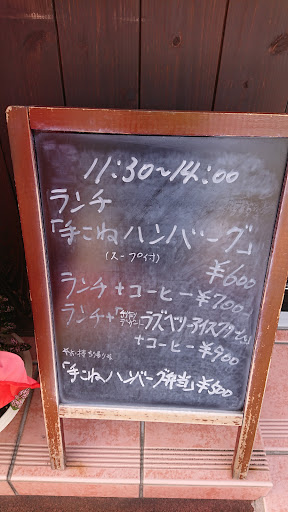 11:30~14:00
ランチ
「手こねハンバーグ」
(スープ付)
¥600
ランチ+コーヒー¥700
ランチ+「手作りデザート」ラズベリーアイスクリーム
+コーヒー¥900
お持ち帰り用
「手こねハンバーグ弁当」¥500